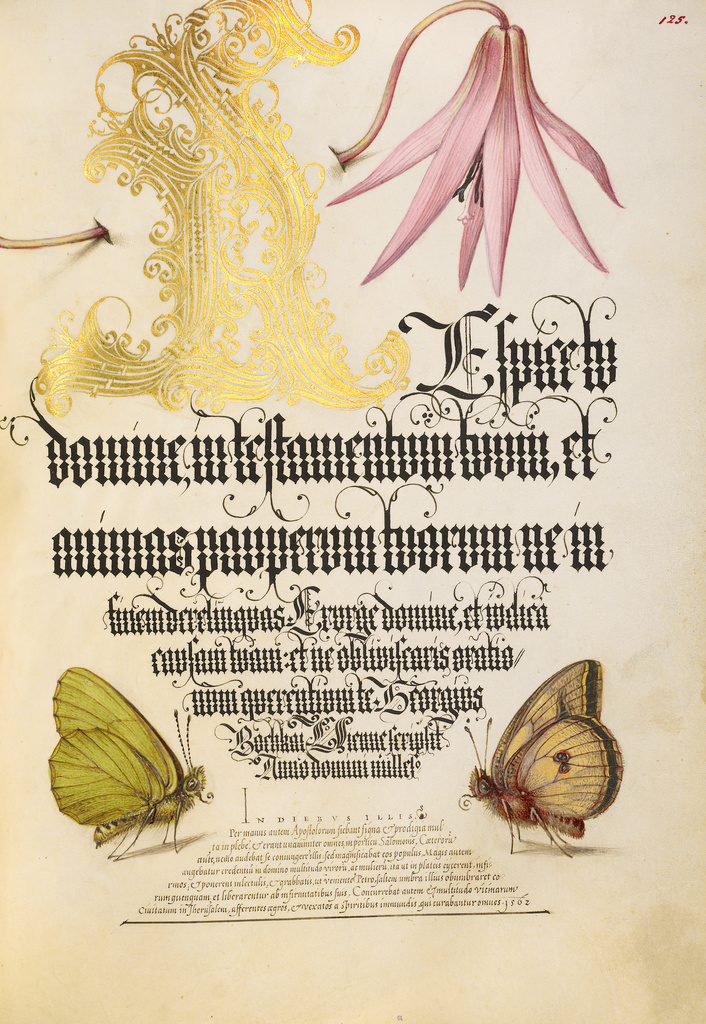 125.
Espice tu
domine, in testamentum tuum, et
animas pauperum tuorum ne in
finem derelinquas. Exurge domine, et iudica
causam tuam: et ne obliuiscaris oratio/
num querentium te. Georgius
Bochkai. Vienne scripsit
Anno domini mille.
IN DIEBVS ILLIS.
Per manus autem Apostolorum fiebant signa & prodigia mul
ta in plebe. & erant unanimiter omnes in porticu Salomonis, Cæterorū
autē, nemo audebat se coniungere illis: sed magnificabat eos populus. Magis autem
augebatur credentiū in domino multitudo virorū, ac mulierū, ita ut in plateis eijcerent, infi-
rmos, & ponerent in lectulis, & grabbatis, ut veniente Petro, saltem umbra illius obumbraret eo-
rum quenquam, et liberarentur ab infirmitatibus suis. Concurrebat autem & multitudo vicinarum
Ciuitatum in Jherusalem, afferentes ægros, & vexatos a spiritibus immundis, qui curabantur omnes. 1562